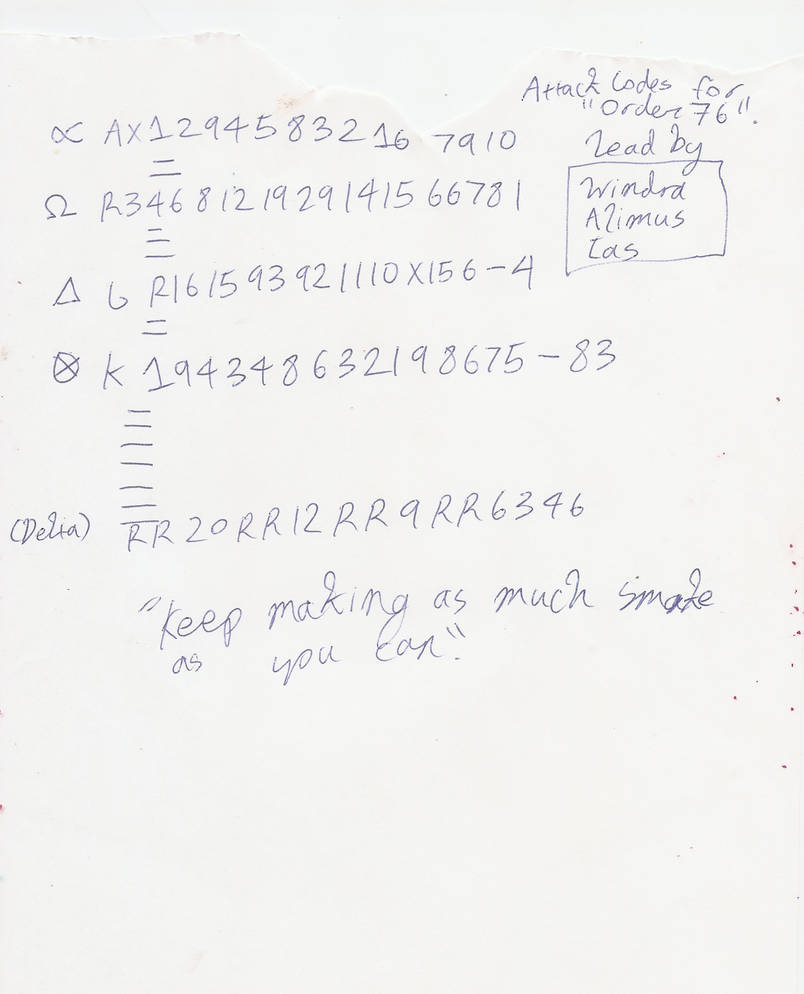 Attack Codes for
"Order 76".
Lead by
Windra
Alimus
Ias
∝ AX1294583216 7910
=
Ω R3468121929141566781
≡
Δ 6 R1615939211110X156-4
=
⊗ K 194348632198675-83
(Delta) RR20RR12RR9RR6346
"Keep making as much smoke
as you can".